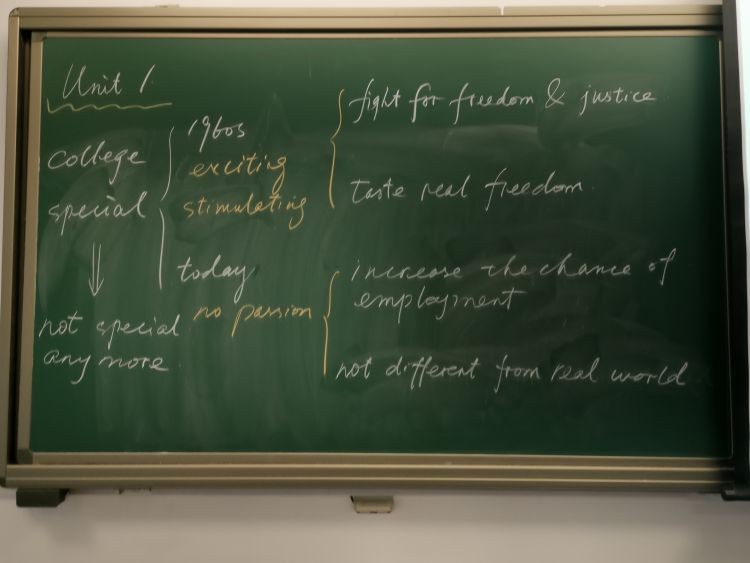 Unit 1
college
special
not special
any more.
1960s
exciting
stimulating
fight for freedom & justice
taste real freedom.
today
no passion
increase the chance of
employment
not different from real world